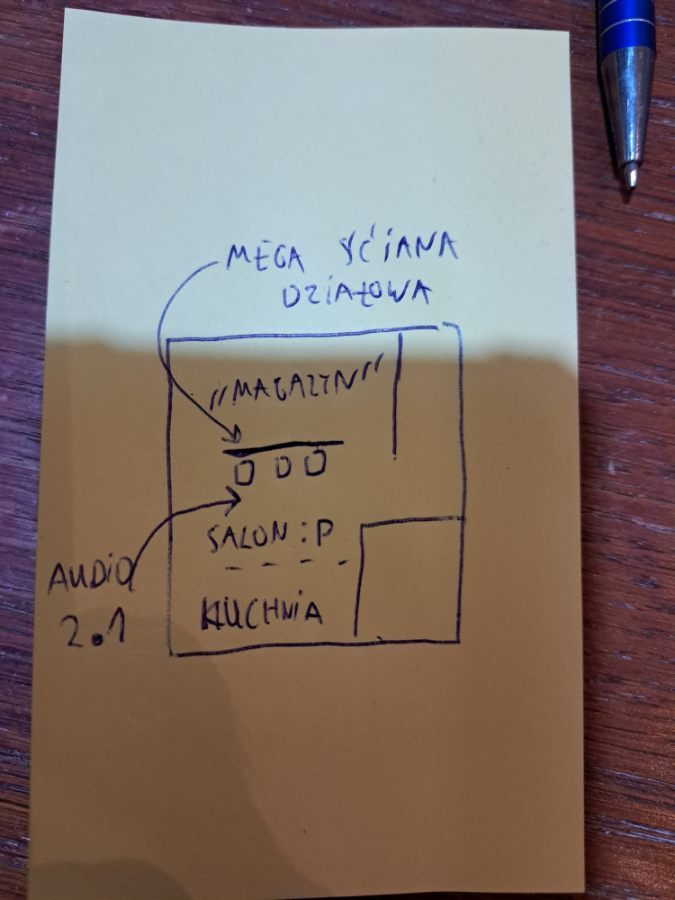 MEGA ŚCIANA
DZIAŁOWA
"MAGAZYN"
SALON :P
AUDIO
2.1
KUCHNIA